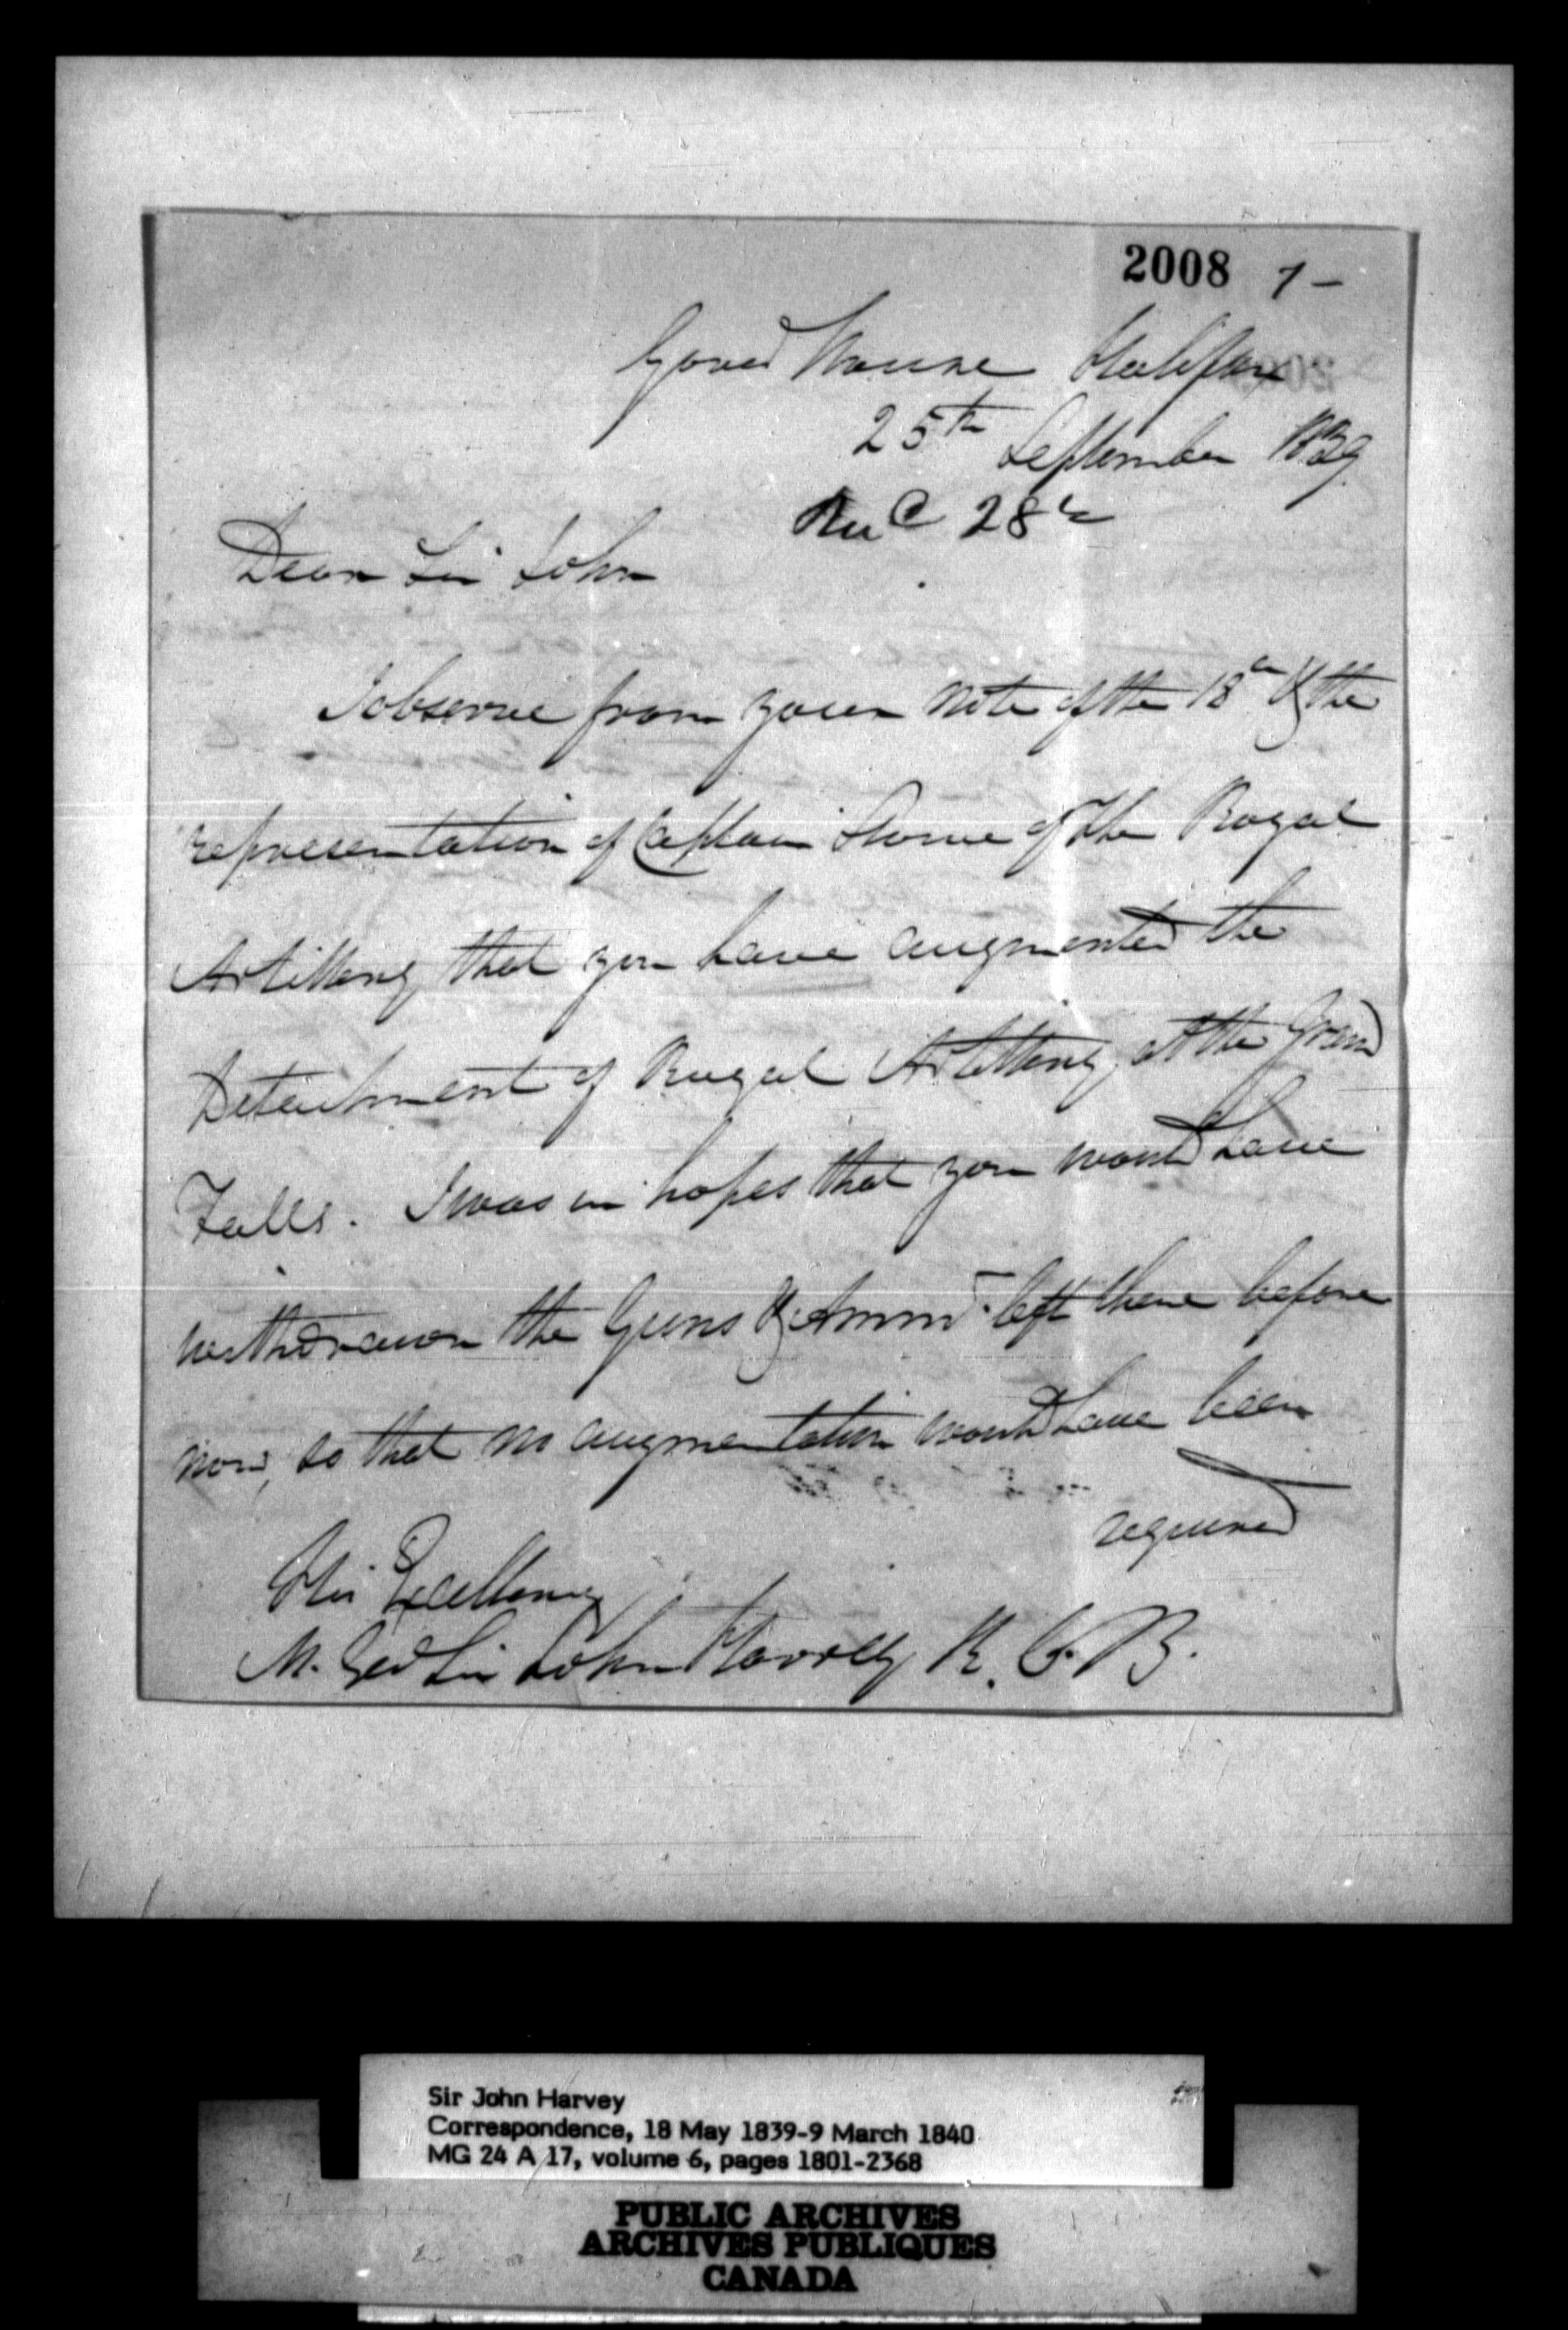 2008 7-
Gover House Halifax
25th September 1839
Recd 28th
Dear Sir John
I observe from your note of the 18th & the
representation of Captain Stowe of the Royal
Artillery, that you have augmented the
Detachment of Royal Artillery, at the Grand
Falls. I was in hopes that you would have
withdrawn the Guns & Ammn left there before
now, so that no augmentation would have been
required
His Excellency
M. Genl Sir John Harvey K.C.B.
Sir John Harvey
Correspondence, 18 May 1839-9 March 1840
MG 24 A 17, volume 6, pages 1801-2368
PUBLIC ARCHIVES
ARCHIVES PUBLIQUES
CANADA